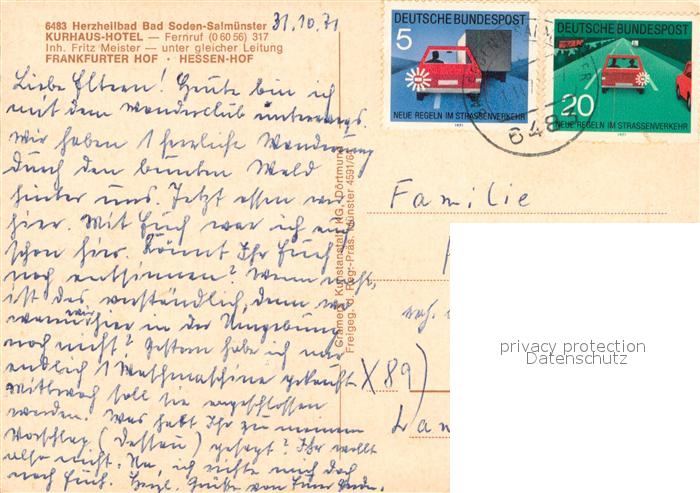 6483 Herzheilbad Bad Soden-Salmünster 31.10.71
KURHAUS-HOTEL — Fernruf (0 60 56) 317
Inh. Fritz Meister — unter gleicher Leitung
FRANKFURTER HOF · HESSEN-HOF
Liebe Eltern! Heute bin ich
mit dem Wanderclub unterwegs.
Wir haben 1 herrliche Wanderung
durch den bunten Wald
hinter uns. Jetzt essen wir
hier. Mit Euch war ich auch
schon hier. Könnt Ihr Euch
noch entsinnen? Wenn nicht,
ist das verständlich, denn wo
waren wir hier in der Umgebung
noch nicht? Gestern habe ich nun
endlich 1 Waschmaschine gekauft.
Mittwoch soll sie angeschlossen
werden. Was habt Ihr zu meinem
Vorschlag (Dessau) gesagt? Ihr wollt
also nicht. Na, ich richte mich doch
nach Euch. Herzl. Grüße von Eurer
Cramers Kunstanstalt KG, Dortmund
Freigeg. d. Reg.-Präs. Münster 4591/6
DEUTSCHE BUNDESPOST
5
NEUE REGELN IM STRASSENVERKEHR
1971
DEUTSCHE BUNDESPOST
20
NEUE REGELN IM STRASSENVERKEHR
1971
6483
Familie
X 89)
privacy protection
Datenschutz